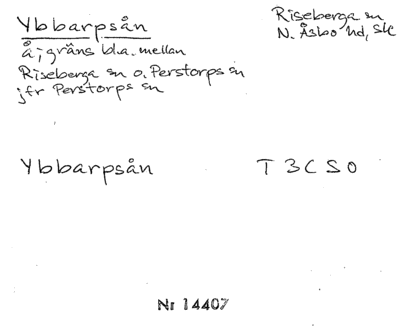 Ybbarpsån
å; gräns bl.a. mellan
Riseberga sn o. Perstorps sn
jfr Perstorps sn
Riseberga sn
N. Åsbo hd, Sk
Ybbarpsån T 3 C S O
Nr 14407